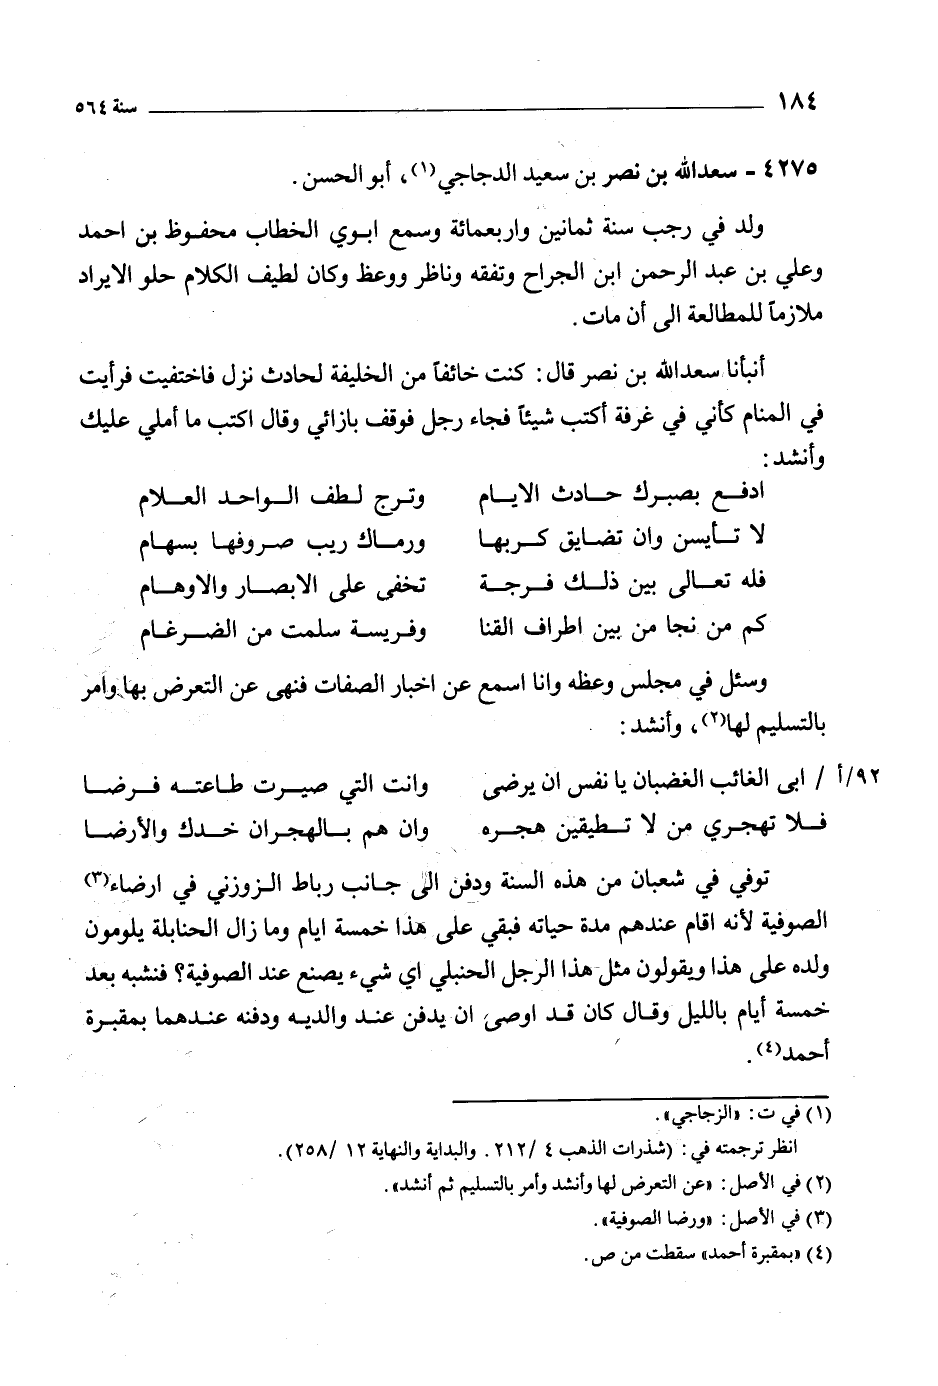 ١٨٤ سنة ٥٦٤
٤٢٧٥ - سعدالله بن نصر بن سعيد الدجاجي(١)، أبو الحسن.
ولد في رجب سنة ثمانين واربعمائة وسمع ابوي الخطاب محفوظ بن احمد
وعلي بن عبد الرحمن ابن الجراح وتفقه وناظر ووعظ وكان لطيف الكلام حلو الايراد
ملازماً للمطالعة الى أن مات.
أنبأنا سعدالله بن نصر قال: كنت خائفاً من الخليفة لحادث نزل فاختفيت فرأيت
في المنام كأني في غرفة أكتب شيئاً فجاء رجل فوقف بازائي وقال اكتب ما أملي عليك
وأنشد:
ادفع بصبرك حادث الايام وترج لطف الواحد العلام
لا تأيسن وان تضايق كربها ورماك ريب صروفها بسهام
فله تعالى بين ذلك فرجة تخفى على الابصار والاوهام
كم من نجا من بين اطراف القنا وفريسة سلمت من الضرغام
وسئل في مجلس وعظه وانا اسمع عن اخبار الصفات فنهى عن التعرض بها وأمر
بالتسليم لها(٢)، وأنشد:
٩٢/أ / ابى الغائب الغضبان يا نفس ان يرضى وانت التي صيرت طاعته فرضا
فلا تهجري من لا تطيقين هجره وان هم بالهجران خدك والأرضا
توفي في شعبان من هذه السنة ودفن الى جانب رباط الزوزني في ارضاء(٣)
الصوفية لأنه اقام عندهم مدة حياته فبقي على هذا خمسة ايام وما زال الحنابلة يلومون
ولده على هذا ويقولون مثل هذا الرجل الحنبلي اي شيء يصنع عند الصوفية؟ فنشبه بعد
خمسة أيام بالليل وقال كان قد اوصى ان يدفن عند والديه ودفنه عندهما بمقبرة
أحمد(٤).
(١) في ت: «الزجاجي».
انظر ترجمته في: (شذرات الذهب ٤ /٢١٢. والبداية والنهاية ١٢ /٢٥٨).
(٢) في الأصل: «عن التعرض لها وأنشد وأمر بالتسليم ثم أنشد».
(٣) في الأصل: «ورضا الصوفية».
(٤) «بمقبرة أحمد» سقطت من ص.